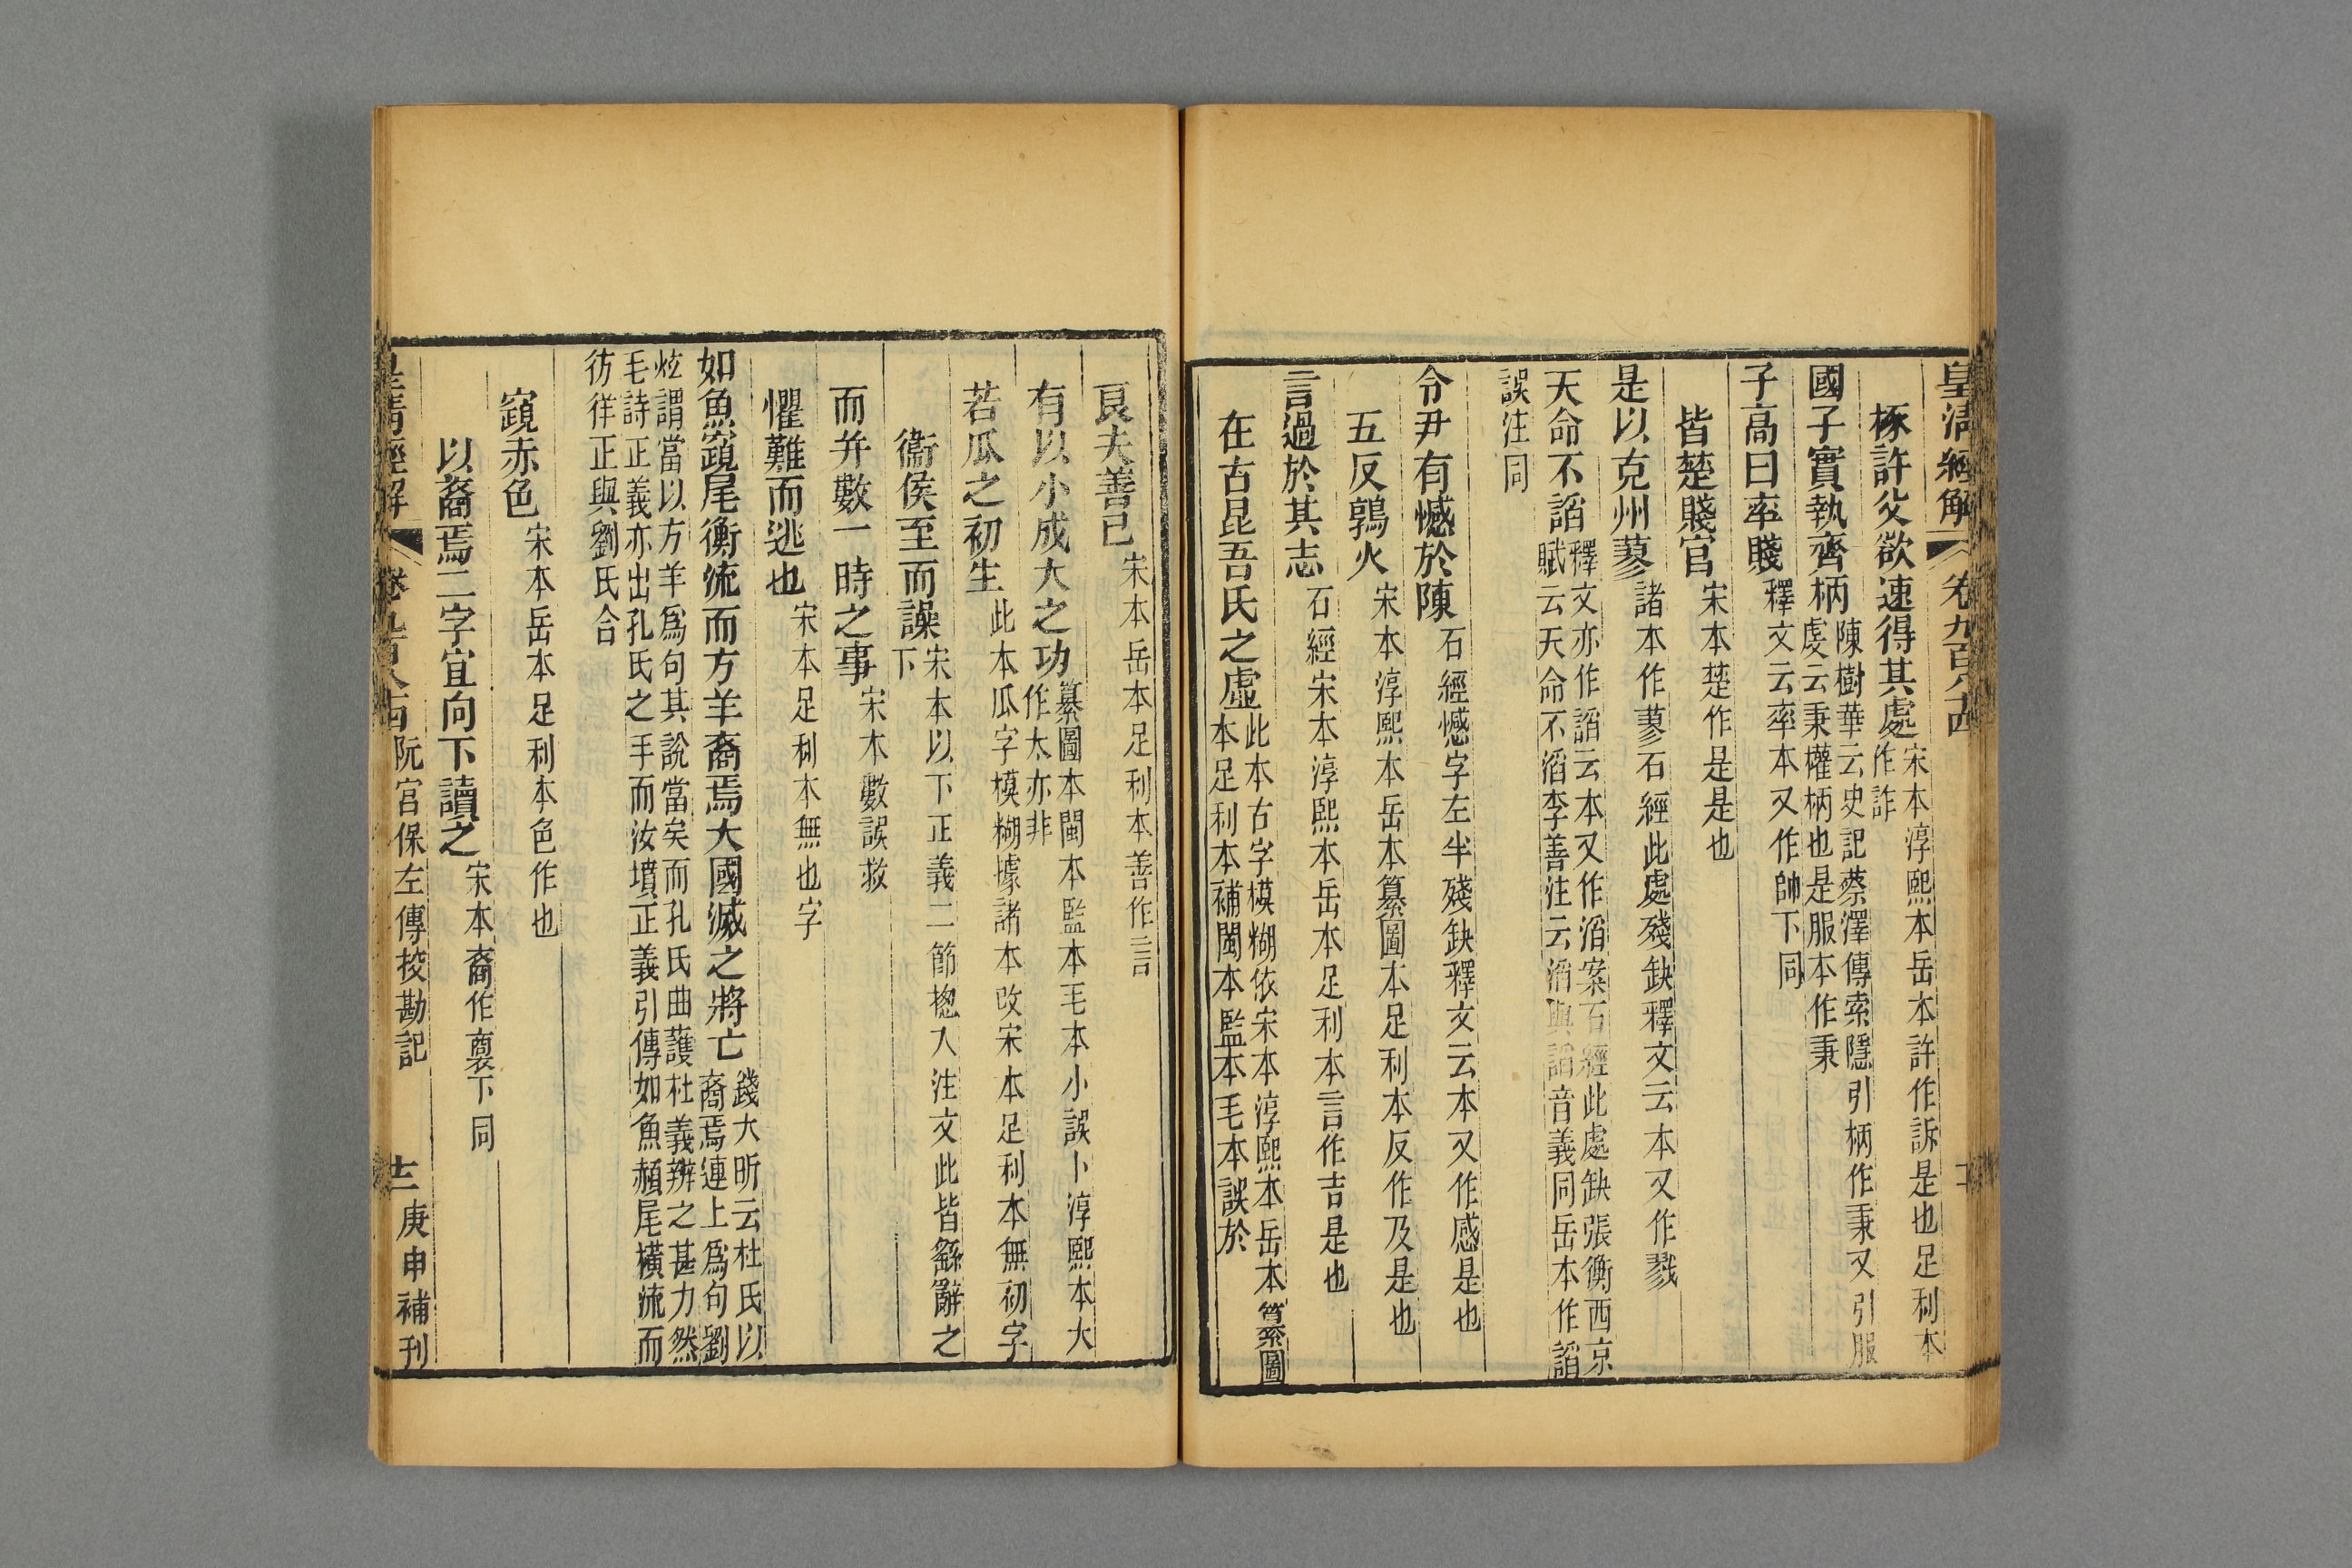 皇清經解 卷九百八十四
椓許父欲速得其處 宋本淳熙本岳本許作訴是也足利本作詐
國子實執齊柄 陳樹華云史記蔡澤傳索隱引柄作秉又引服虔云秉權柄也是服本作秉
子高曰率賤 釋文云率本又作帥下同
皆楚賤官 宋本楚作是是也
是以克州蓼 諸本作蓼石經此處殘缺釋文云本又作戮
天命不謟 釋文亦作謟云本又作滔案石經此處缺張衡西京賦云天命不滔李善注云滔與謟音義同岳本作諂
誤注同
令尹有憾於陳 石經憾字左半殘缺釋文云本又作感是也
五反鶉火 宋本淳熙本岳本纂圖本足利本反作及是也
言過於其志 石經宋本淳熙本岳本足利本言作吉是也
在古昆吾氏之虛 此本古字模糊依宋本淳熙本岳本纂圖本足利本補閩本監本毛本誤於
良夫善己 宋本岳本足利本善作言
有以小成大之功 纂圖本閩本監本毛本小誤卜淳熙本大作太亦非
若瓜之初生 此本瓜字模糊據諸本改宋本足利本無初字
衞侯至而譟 宋本以下正義二節揔入注文此皆繇辭之下
而并數一時之事 宋本數誤救
懼難而逃也 宋本足利本無也字
如魚竀尾衡流而方羊裔焉大國滅之將亡 錢大昕云杜氏以裔焉連上爲句劉
炫謂當以方羊爲句其說當矣而孔氏曲護杜義辨之甚力然毛詩正義亦出孔氏之手而汝墳正義引傳如魚赬尾橫流而
彷徉正與劉氏合
竀赤色 宋本岳本足利本色作也
以裔焉二字宜向下讀之 宋本裔作裛下同
皇清經解 卷九百八十四 阮宮保左傳挍勘記 十二 庚申補刊